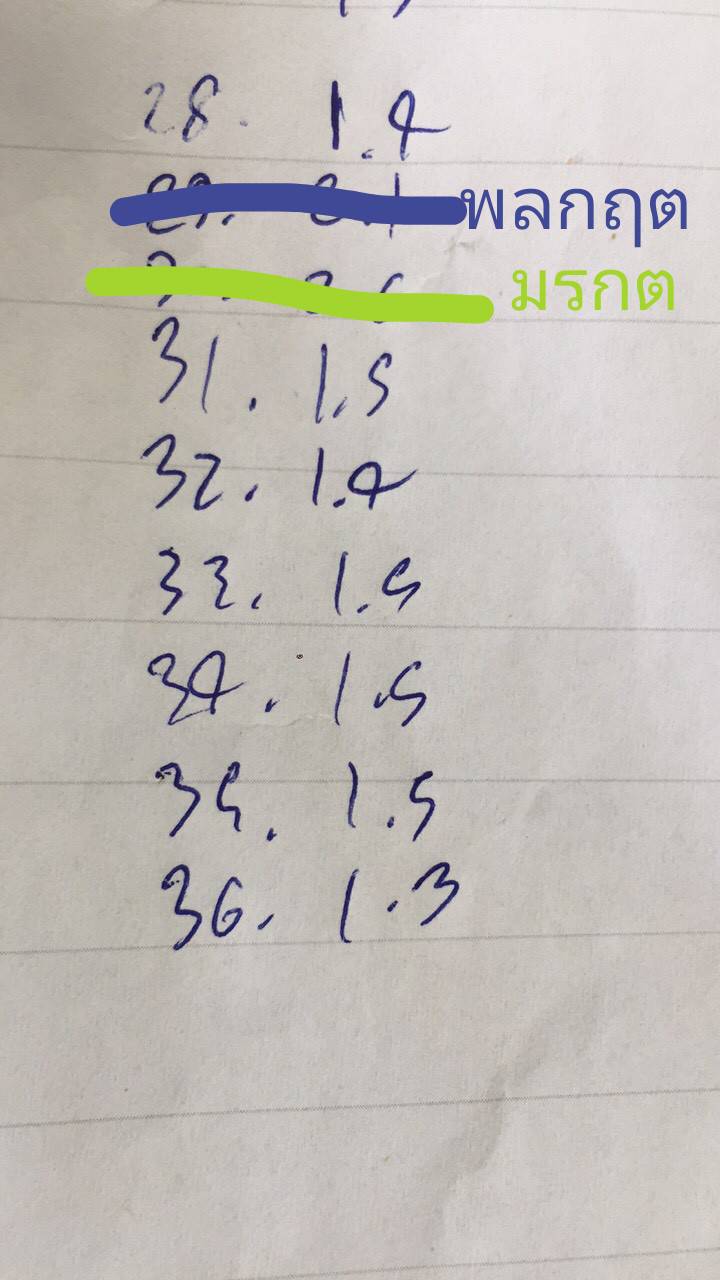 28. 1.4
29. 2.1 พลกฤต
มรกต
31. 1.5
32. 1.4
33. 1.5
34. 1.5
35. 1.5
36. 1.3